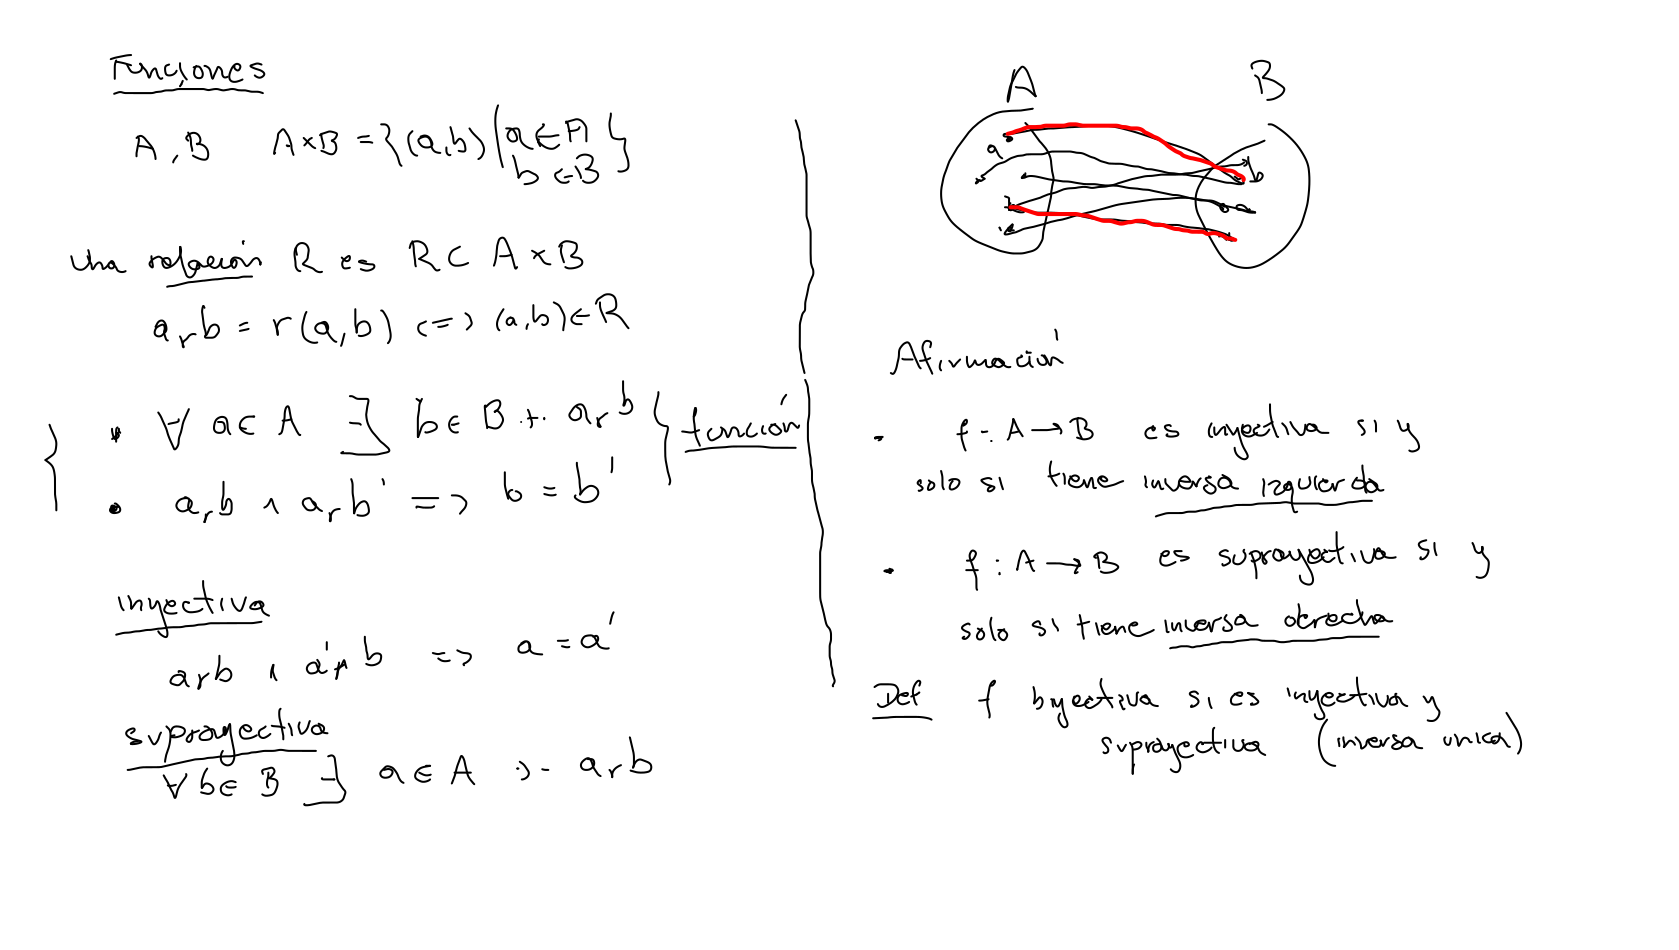 Funciones
A, B A×B = {(a,b) | a ∈ A
b ∈ B}
una relación R es R ⊂ A × B
a r b = r(a,b) <=> (a,b) ∈ R
• ∀ a ∈ A ∃ b ∈ B .t. a r b } función
• a r b ∧ a r b' => b = b'
inyectiva
a r b ∧ a' r b => a = a'
suprayectiva
∀ b ∈ B ∃ a ∈ A a r b
A B
a b
Afirmación
• f : A → B es inyectiva si y
solo si tiene inversa izquierda
• f : A → B es suprayectiva si y
solo si tiene inversa derecha
Def f biyectiva si es inyectiva y
suprayectiva (inversa unica)